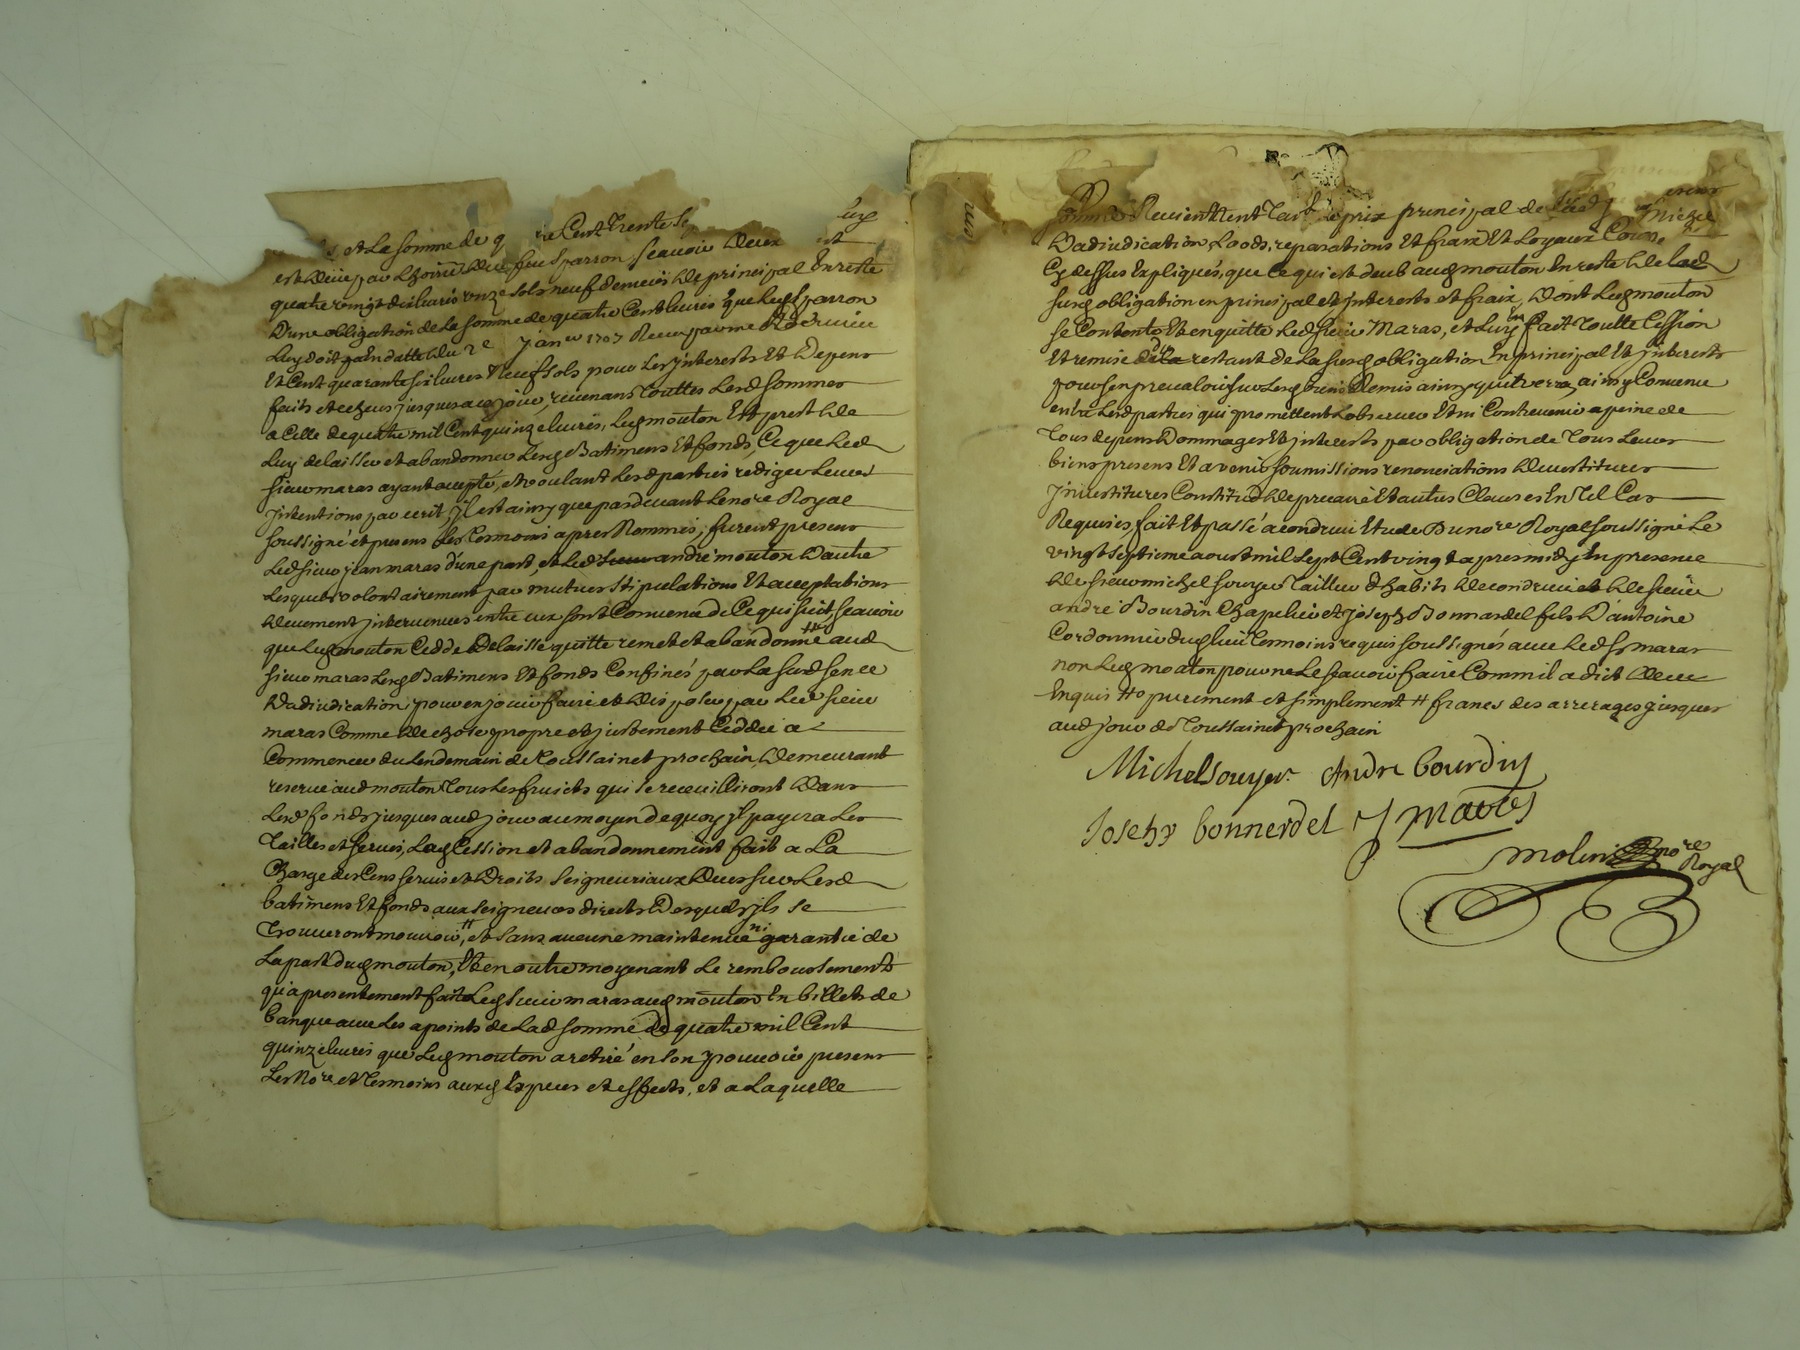 et La Somme de q re Cent Trente Se
est deüe par L'hoirie du feu Sparron Scavoir deux
quatre vingt dix livres onze Sols neuf deniers de principal En reste
D'une obligation de La Somme de quatre Cent livres que Led Sparron
Luy doit janer 1707 Receu par me
Et Cent quarante Six livres neuf Sols pour Les jnterests Et depens
faits et echeus jusques a ce jour, revenans Touttes Lesd Sommes
a Celle de quatre mil Cent quinze livres, Led mouton Est prest de
Luy delaisser et abandonner Lesd Batimens Et fonds, Ce que Led
Sieur maras ayant accepté, et voulant Lesd parties rediger Leurs
jntentions par ecrit, jl est ainsy que pardevant Le nore Royal
Soussigné et presens Les Tesmoins apres Nommés, furent presens
Led Sieur jean maras d'une part, et Led Sieur andré mouton d'autre
Lesquels volontairement par mutues Stipulations Et acceptations
deuement jntervenues entre eux sont Convenus de Ce qui Suit Scavoir
que Led mouton Cedde delaisse quitte remet et abandonne aud
Sieur maras Lesd Batimens Et fonds Confinés par La Susd Sence
D'adiudication, pour en jouir faire et disposer par Led Sieur
maras Comme de chose propre et justement Ceddée a
Commencer du Lendemain de Toussainet prochain, demeurant
reservé aud mouton Tous Les fruicts qui se receuilliront dans
Lesd fonds jusques aud jour au moyen de quoy jl payera Les
Tailles et Servis, Lad Cession et abandonnement fait a La
Charge des Cens Servis et droits Seigneuriaux deus Sur Lesd
batimens Et fonds aux Seigneurs directs desquels jls se
Trouveront mouvoir, # et Sans aucune maintenue ni garantie de
La part dud mouton, Et en outre moyenant Le remboursement
qu'a presentement fait Led Sieur maras aud mouton En billets de
banque avec Les apoints de Lad Somme de quatre mil Cent
quinze livres que Led mouton a retiré en Son pouvoir presens
Les Nore et Tesmoins aux Especes et effects, et a Laquelle
Somme Reviennent Tant Le prix principal de
D'adiudication Loods, reparations Et fraix Et Loyaux Cous
Cy dessus Expliqués, que Ce qui est deub aud mouton En reste de Lad
Susd obligation en principal et jnterests et fraix, dont Led mouton
Se Contente Et en quitte Led Sieur Maras, et Luy En fait Toutte Cession
Et remise du restant de La Susd obligation En principal Et jnterests
pour S'en prevaloir Sur Lesd biens Remis ainsy qu'il verra, ainsy Convenu
entre Lesd parties qui promettent L'observer Et ni Contrevenir a peine de
Tous depens Dommages Et jnterests par obligation de Tous Leurs
biens presens Et avenir Soumissions renonciations devestitures
jnvestitures Constitut de precaire Et autres Clauses En Tel Cas
Requises, fait Et passé a condrieu Etude Du nore Royal Soussigné Le
vingt Septieme aoust mil Sept Cent vingt apres midy En presence
de Sieur michel Souyer Tailleur d'habits de condrieu et de Sieur
andré Bourdin Chapelier et joseph Bonnardel fils D'antoine
Cordonnier dud lieu Tesmoins requis Soussignés avec Led Sr maras
non Led mouton pour ne Le Scavoir faire Comm'il a dict deue
Enquis # purement et Simplement # francs des arrerages jusques
aud jour de Toussainet prochain
Michel souyer Andre bourdin
Joseph bonnerdel J maras
molin nore
Royal